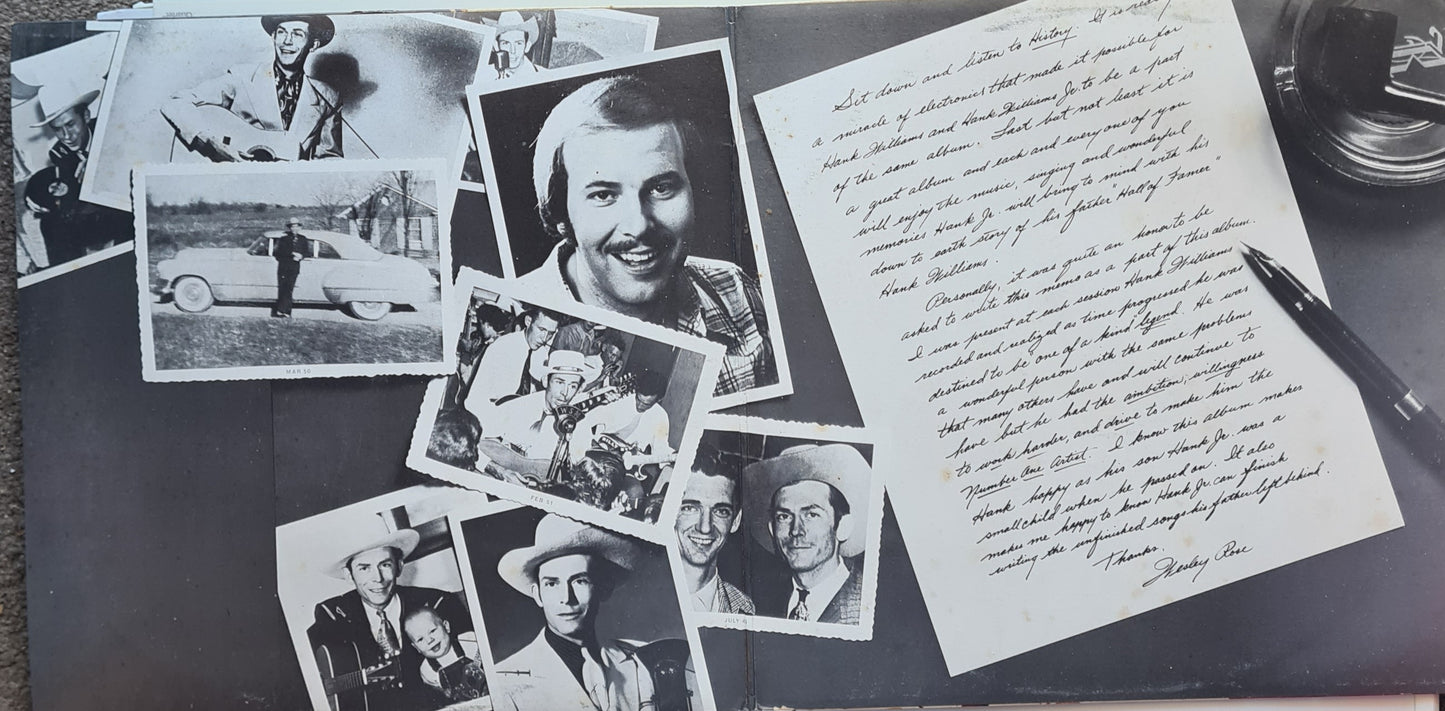 MAR 50
FEB 51
JULY 4
Sit down and listen to History. It is really
a miracle of electronics that made it possible for
Hank Williams and Hank Williams Jr. to be a part
of the same album. Last but not least it is
a great album and each and everyone of you
will enjoy the music, singing and wonderful
memories Hank Jr. will bring to mind with his
down to earth story of his father "Hall of Famer"
Hank Williams.
Personally, it was quite an honor to be
asked to write this memo as a part of this album.
I was present at each session Hank Williams
recorded and realized as time progressed he was
destined to be "one of a kind" legend. He was
a wonderful person with the same problems
that many others have and will continue to
have but he had the ambition, willingness
to work harder, and drive to make him the
Number One Artist. I know this album makes
Hank happy as his son Hank Jr. was a
small child when he passed on. It also
makes me happy to know Hank Jr. can finish
writing the unfinished songs his father left behind.
Thanks.
Wesley Rose